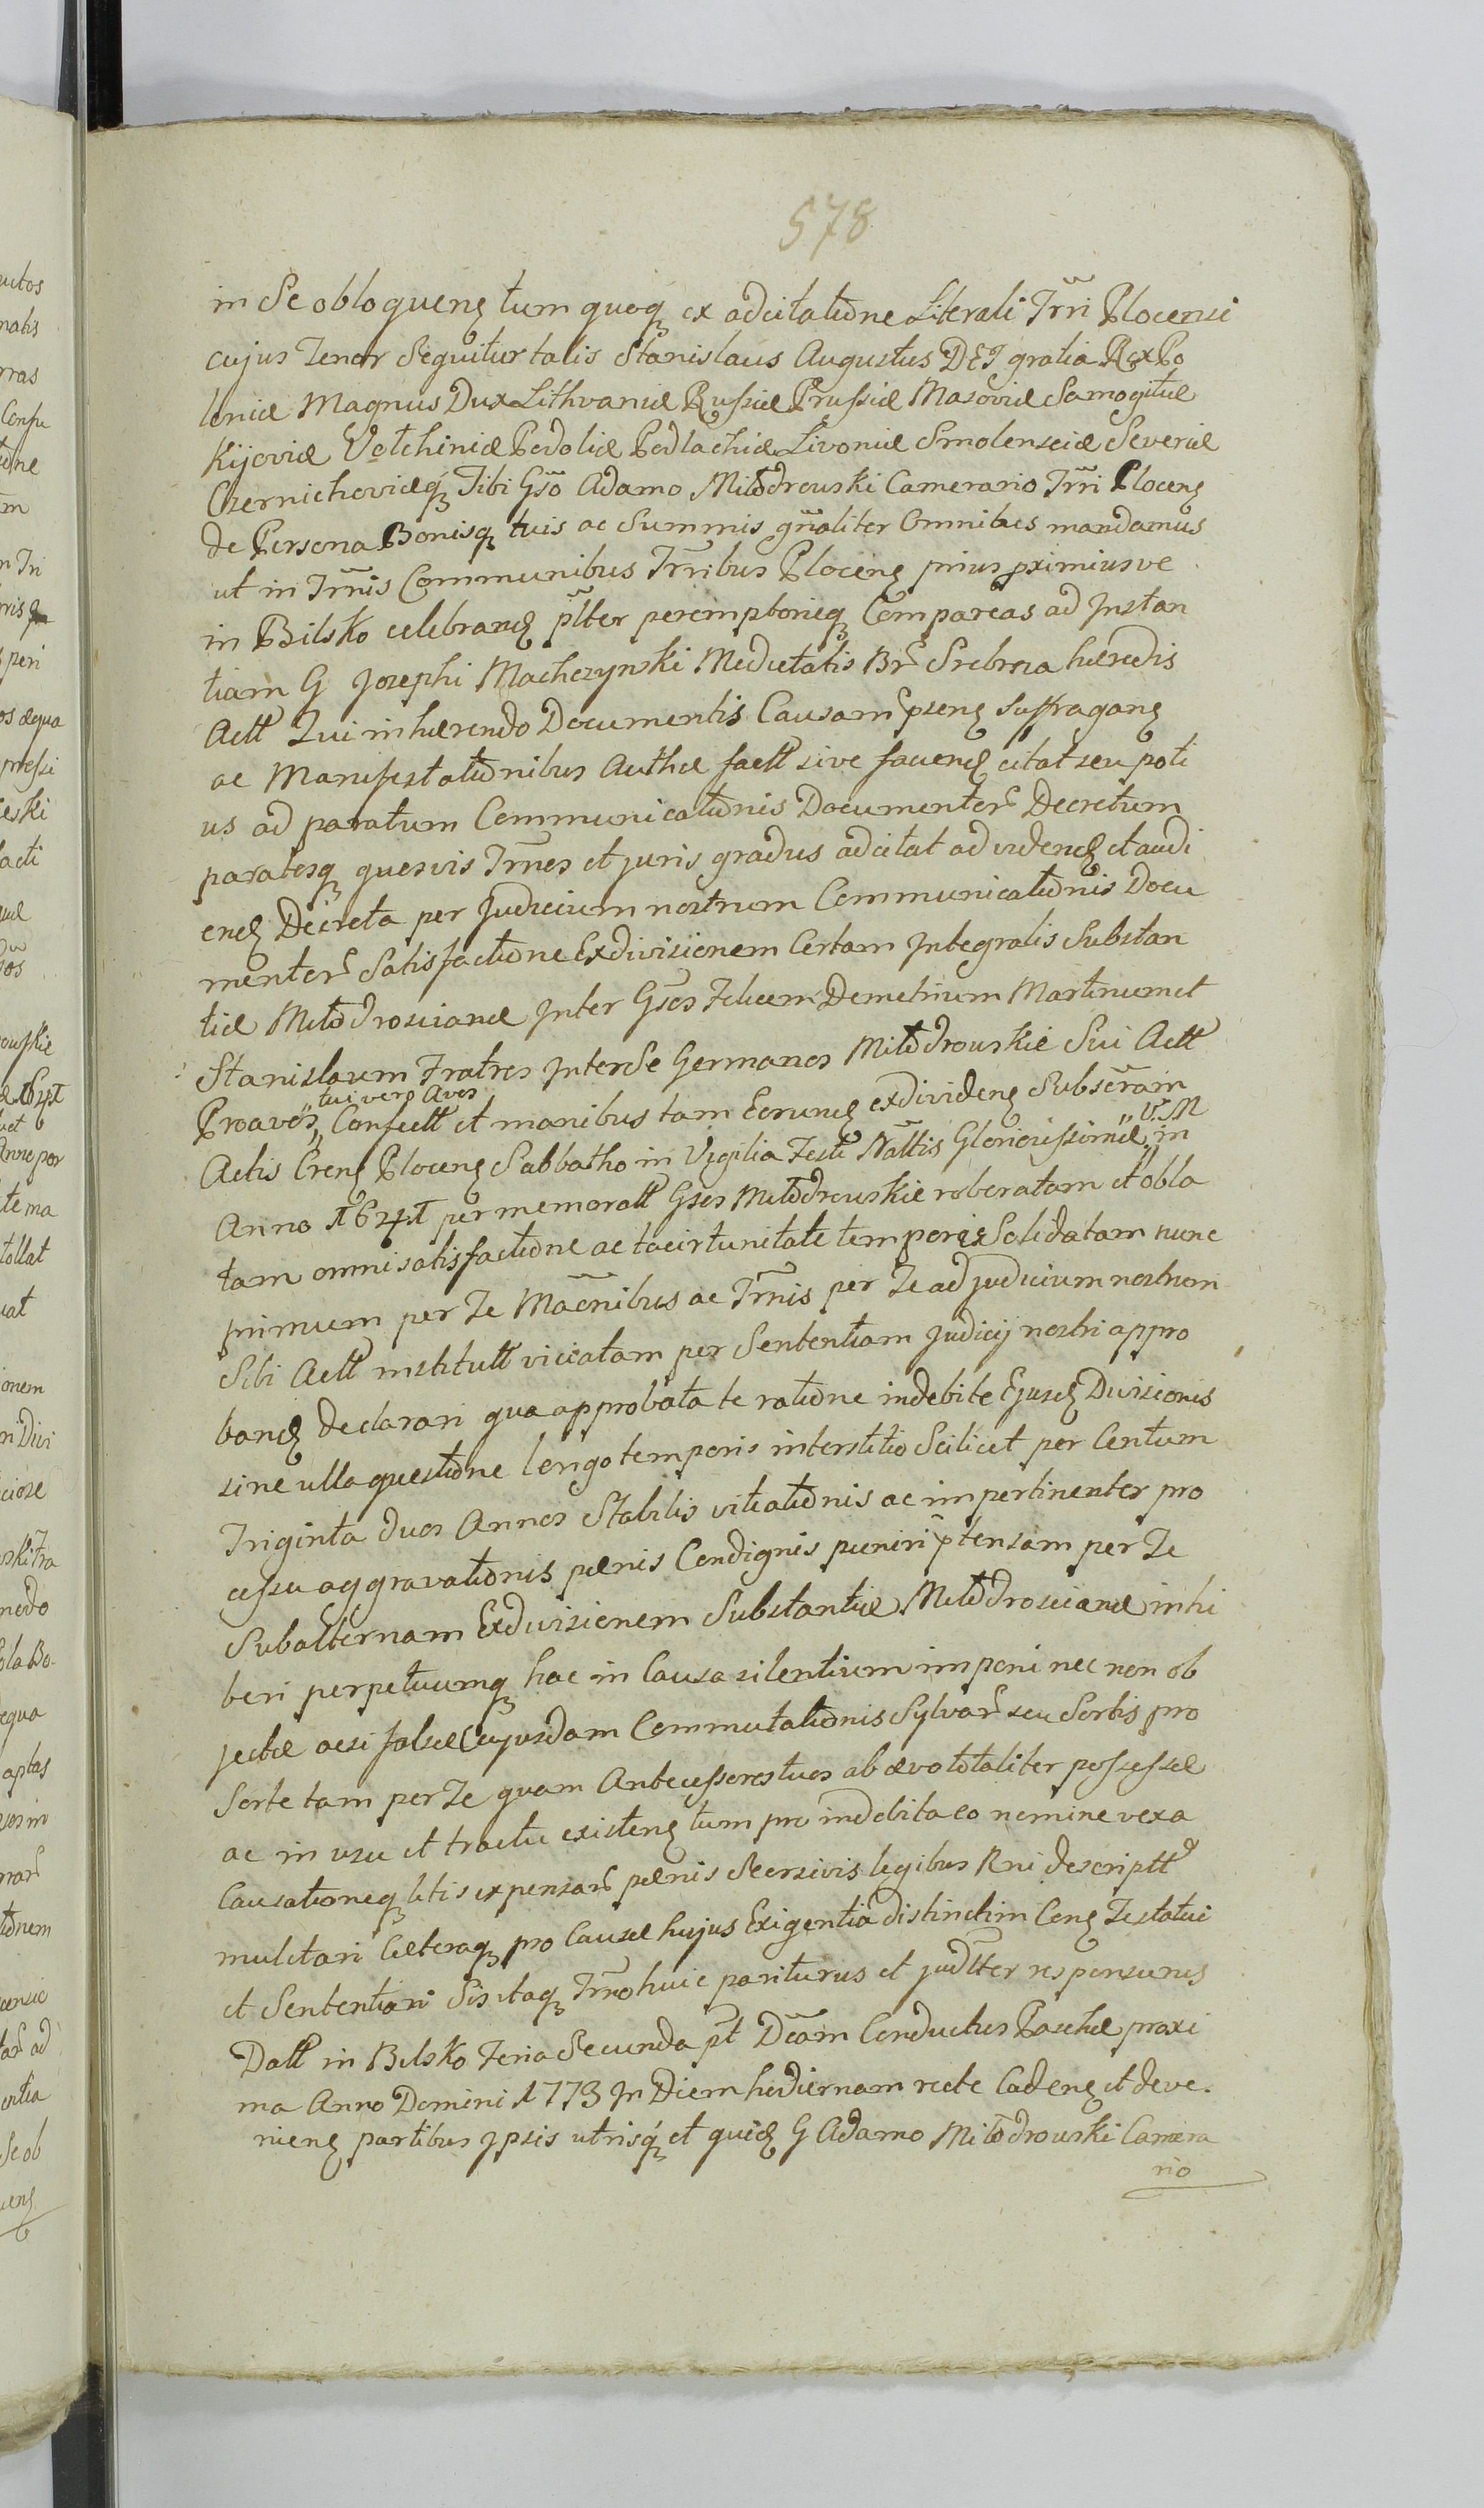 578
in Se obloquenꝫ tum quoqꝫ ex adcitatione Literali Trri Plocensi
cujus Tenor Sequitur talis Stanislaus Augustus DEI gratia Rex Po
loniæ Magnus Dux Lithvaniæ Russiæ Prussiæ Masoviæ Samogitiæ
Kijoviæ Volhiniæ Podoliæ Podlachiæ Livoniæ Smolensciæ Severiæ
Czernichoviæqꝫ Tibi Gso Adamo Miłodrowski Camerario Trri Plocenꝫ
de Persona Bonisqꝫ tuis ac Summis gnaliter Omnibus mandamus
ut in Trmis Communibus Trribus Plocenꝫ prius pximiusve
in Bilsko celebrandꝫ pltter peremptorieqꝫ Compareas ad Instan
tiam G Josephi Machczynski Medietatis Br Srebrna hæredis
Actt Qui inhærendo Documentis Causam psenꝫ Suffraganꝫ
ac Manifestationibus Authæ factt sive faciendꝫ citat seu poti
us ad paratum Communicationis Documentor Decretum
paratosqꝫ quosvis Trmos et juris gradus adcitat ad videndꝫ et audi
endꝫ Decreta per Judicium nostrum Communicationis Docu
mentor Satisfactione Exdivisionem Certam Integralis Substan
tiæ Miłodrosciane Inter Gsos Felicem Demetrium Martinum et
Stanislaum Fratres Inter Se Germanos Miłodrowskie Sui Actt
Proavos, tui vero Avos, Confectt et manibus tam Eorundꝫ exdividenꝫ Subscram
Actis Crenꝫ Plocenꝫ Sabbatho in Vigilia Festi Nattis Gloriosissimæ V. M in
Anno 1641 per memoratt Gsos Miłodrowskie roboratam et obla
tam omni satisfactione ac taciturnitate temporis Solidatam nunc
primum per Te Macōnibus ac Trmis per Te ad judicium nostrum
Sibi Actt institutt viciatam per Sententiam Judicij nostri appro
bandꝫ declarari qua approbata te ratione indebitæ Ejusdꝫ Divisionis
sine ulla questione longo temporis interstitio Scilicet per Centum
Triginta duos Annos Stabilis vitiationis ac impertinenter pro
cessu aggravationis pænis Condignis puniri ptensam per Te
Subalternam Exdivisionem Substantiæ Miłodrosciane inhi
beri perpetuumqꝫ hac in Causa silentium imponi nec non ob
jectæ acsi falsæ Cujusdam Commutationis Sylvar seu Sortis pro
Sorte tam per Te quam Antecessores tuos ab ævo totaliter possessæ
ac in usu et tractu existenꝫ tum pro indebita eo nomine vexa
Causationeqꝫ litis expensar pænis Secusivis legibus Rni descriptt
mulctari Cæteraqꝫ pro Causæ hujus Exigentia distinctim Cenꝫ Te statui
et Sententiari Sis itaqꝫ Trmo huic pariturus et judltter responsurus
Datt in Bilsko Feria Secunda pt Dcam Conductus Paschæ proxi
ma Anno Domini 1773 In Diem hodiernam recte Cadenꝫ et deve
nienꝫ partibus Ipsis utrisqꝫ et quidꝫ G Adamo Miłodrowski Camera
rio